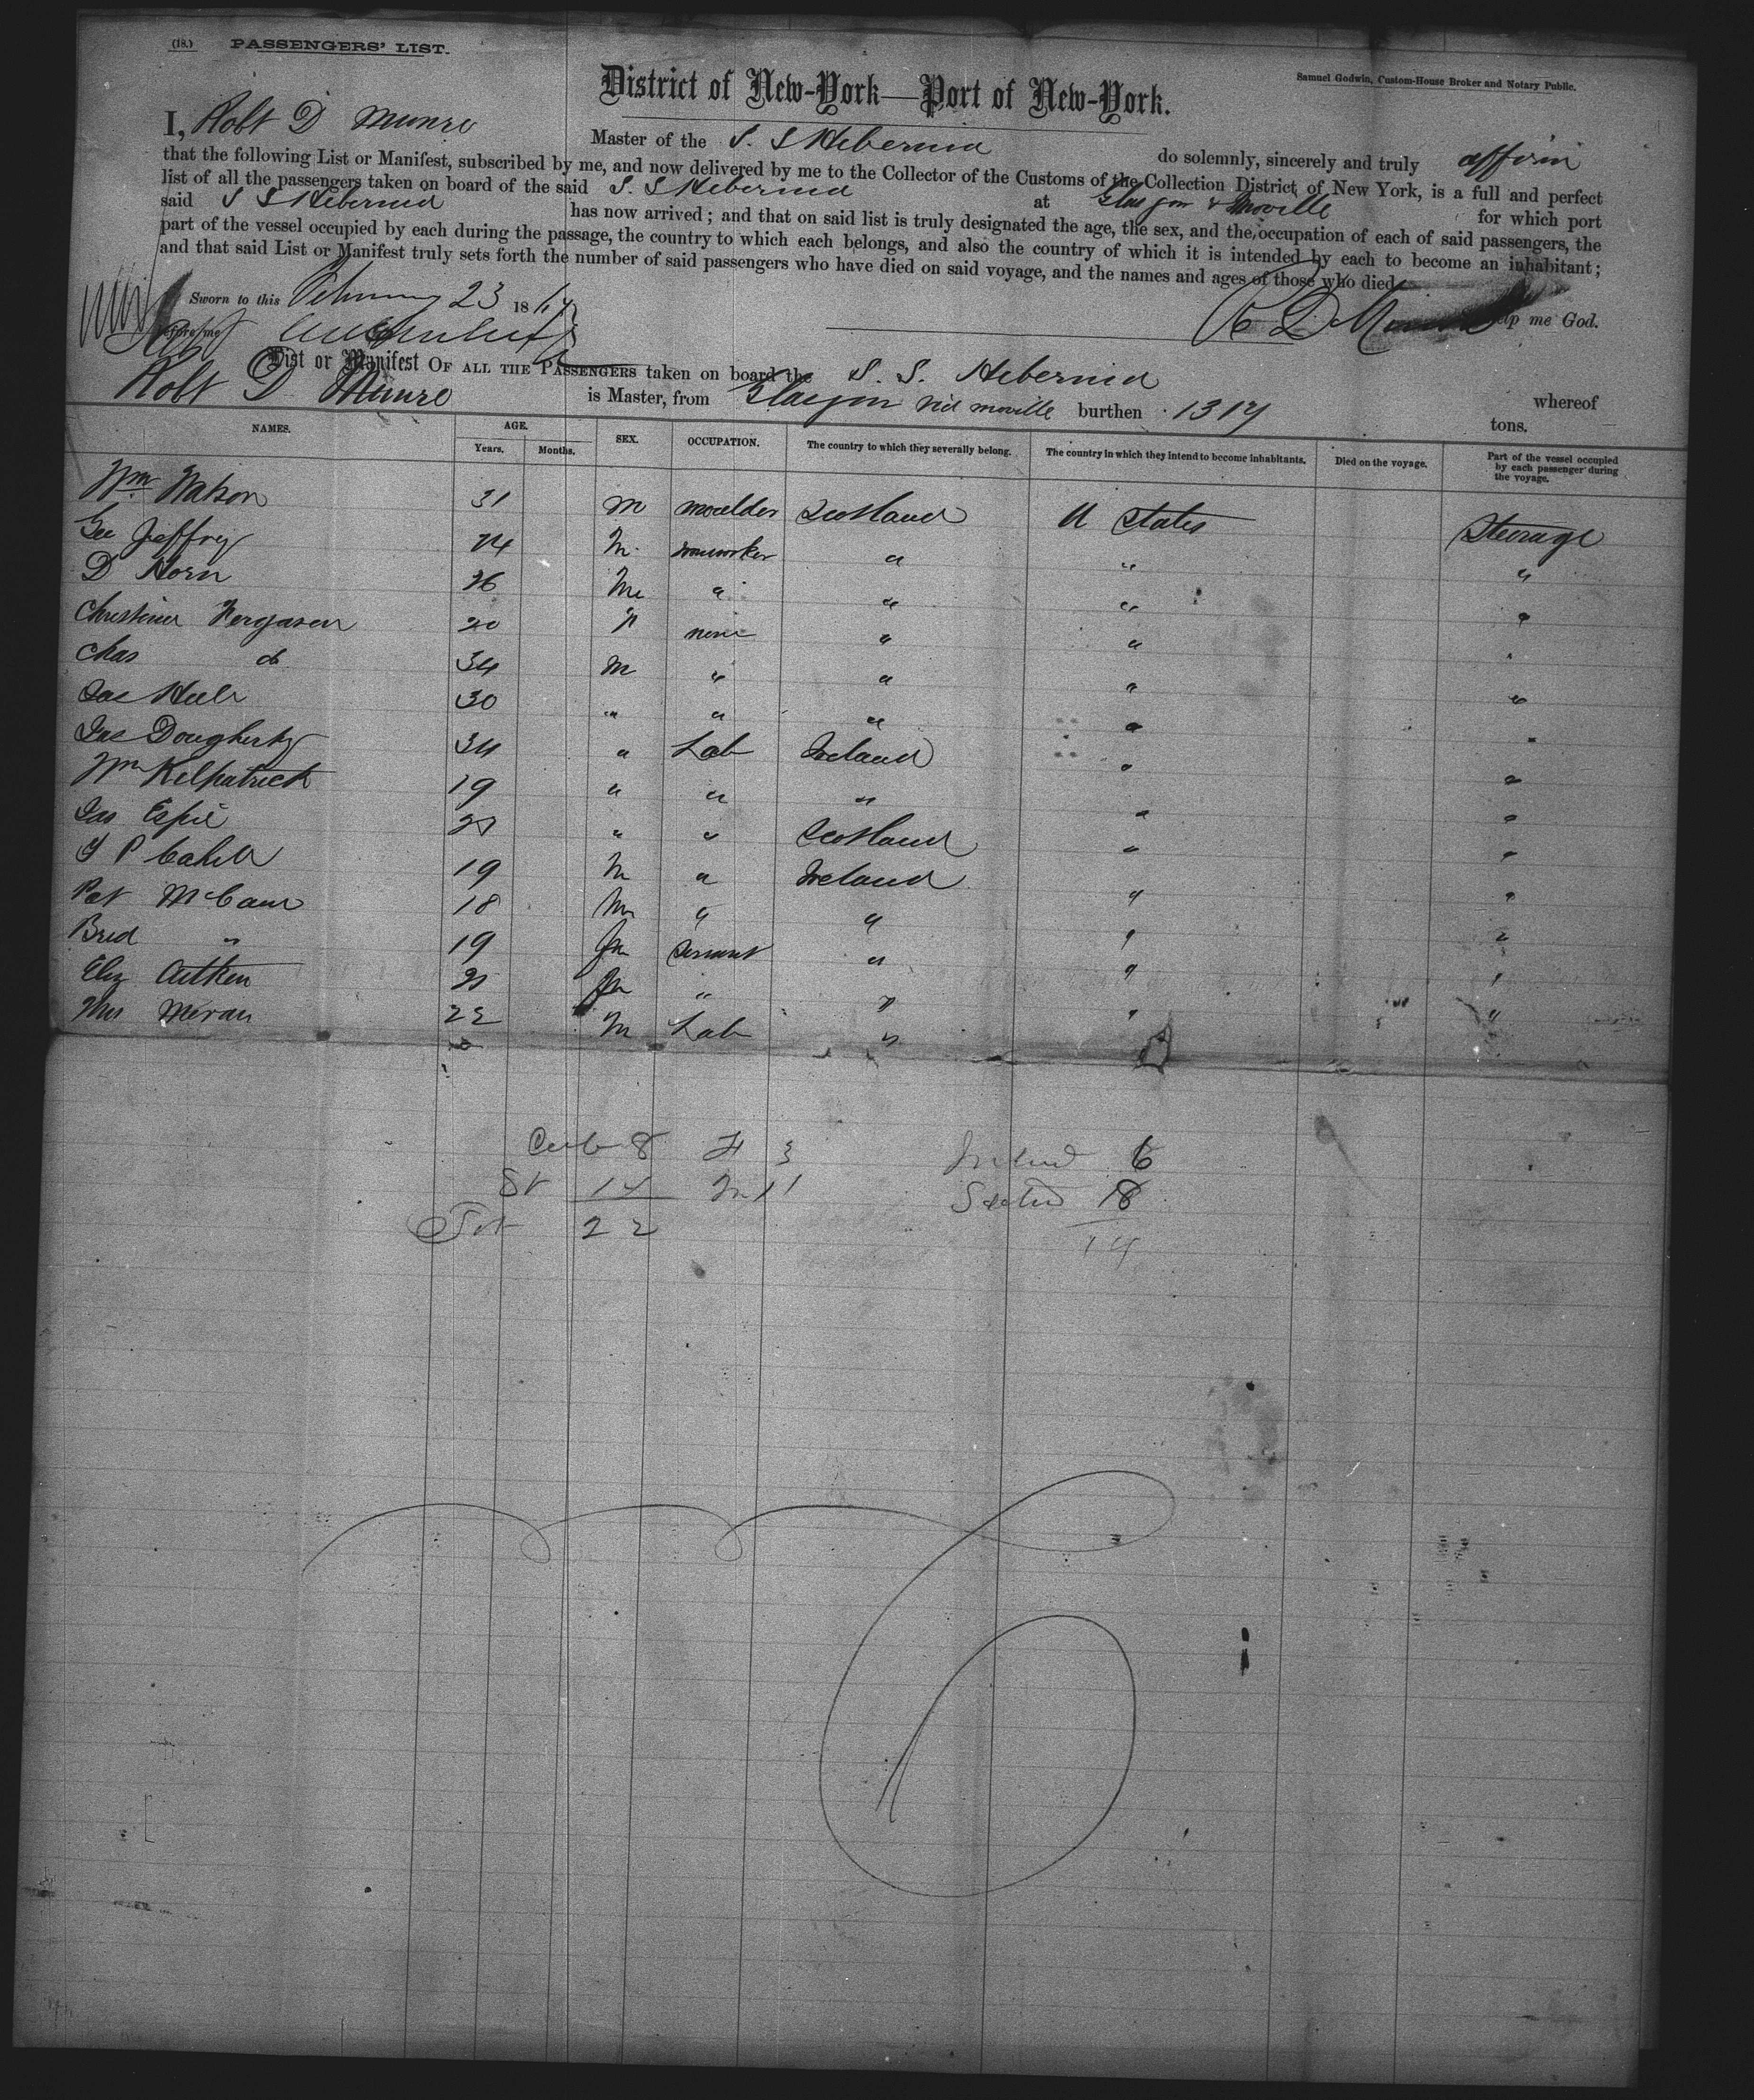 (18.) PASSENGERS' LIST.
Samuel Godwin, Custom-House Broker and Notary Public.
District of New-York—Port of New-York.
I, Robt D Munro Master of the S. S Hibernia do solemnly, sincerely and truly affirm
that the following List or Manifest, subscribed by me, and now delivered by me to the Collector of the Customs of the Collection District of New York, is a full and perfect
list of all the passengers taken on board of the said S. S Hibernia at Glasgow & Moville for which port
said S S Hibernia has now arrived; and that on said list is truly designated the age, the sex, and the occupation of each of said passengers, the
part of the vessel occupied by each during the passage, the country to which each belongs, and also the country of which it is intended by each to become an inhabitant;
and that said List or Manifest truly sets forth the number of said passengers who have died on said voyage, and the names and ages of those who died.
Sworn to this February 23 18 R D Munro help me God.
List or Manifest OF ALL THE PASSENGERS taken on board the S. S. Hibernia whereof
Robt D Munro is Master, from Glasgow via Moville burthen 1317 tons.
NAMES. AGE. Years. Months. SEX. OCCUPATION. The country to which they severally belong. The country in which they intend to become inhabitants. Died on the voyage. Part of the vessel occupied by each passenger during the voyage.
Wm Watson 31 M moulder Scotland U States Steerage
Geo Jeffrey 24 M. ironworker " " "
D Horn 26 M " " " "
Christina Fergason 20 F none " " "
Chas do 34 M " " " "
Jas 30 " " " " "
Jas Dougherty 34 " Lab Ireland " "
Wm Kilpatrick 19 " " " " "
Jas Espie " " Scotland " "
P Cahill 19 M " Ireland " "
Pat McCann 18 M " " " "
Brid " 19 Fm Servant " " "
Eliz Aitken 21 Fm " " " "
Moran 22 M Lab "
Cab 8 F 3 Ireland 6
St 14 M 11 Scotld 8
Tot 22 14